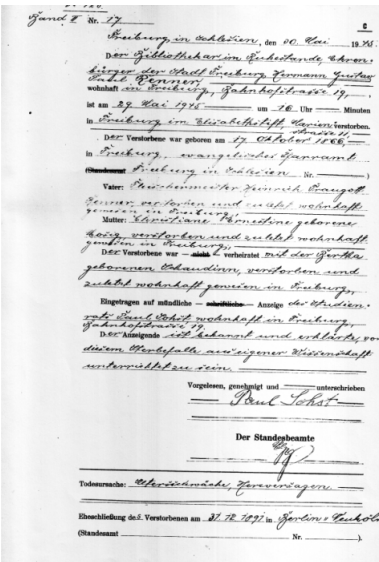 C
Band II Nr. 17
Freiburg in Schlesien, den 30. Mai 1945.
Der Bibliothekar im Ruhestande, Ehren-
bürger der Stadt Freiburg Hermann Gustav
Paul Renner,
wohnhaft in Freiburg, Bahnhofstraße 19,
ist am 29. Mai 1945 um 16 Uhr Minuten
in Freiburg im Elisabethstift, Marien- verstorben.
straße 11,
Der Verstorbene war geboren am 17. Oktober 1866
in Freiburg, evangelisches Pfarramt
(Standesamt Freiburg in Schlesien Nr. )
Vater: Fleischermeister Heinrich Traugott
Renner, verstorben und zuletzt wohnhaft
gewesen in Freiburg,
Mutter: Christiane Ernestine geborene
verstorben und zuletzt wohnhaft
gewesen in Freiburg,
Der Verstorbene war nicht verheiratet mit der Bertha
geborenen Schaudinn, verstorben und
zuletzt wohnhaft gewesen in Freiburg.
Eingetragen auf mündliche schriftliche Anzeige des Studien-
rats Paul Sohst wohnhaft in Freiburg,
Bahnhofstraße 19.
Der Anzeigende ist bekannt und erklärte, von
diesem Sterbefalle aus eigener Wissenschaft
unterrichtet zu sein.
Vorgelesen, genehmigt und unterschrieben
Paul Sohst
Der Standesbeamte
Todesursache: Altersschwäche, Herzversagen
Eheschließung des Verstorbenen am 31.12.1891 in Berlin-Neukölln
(Standesamt Nr. ).